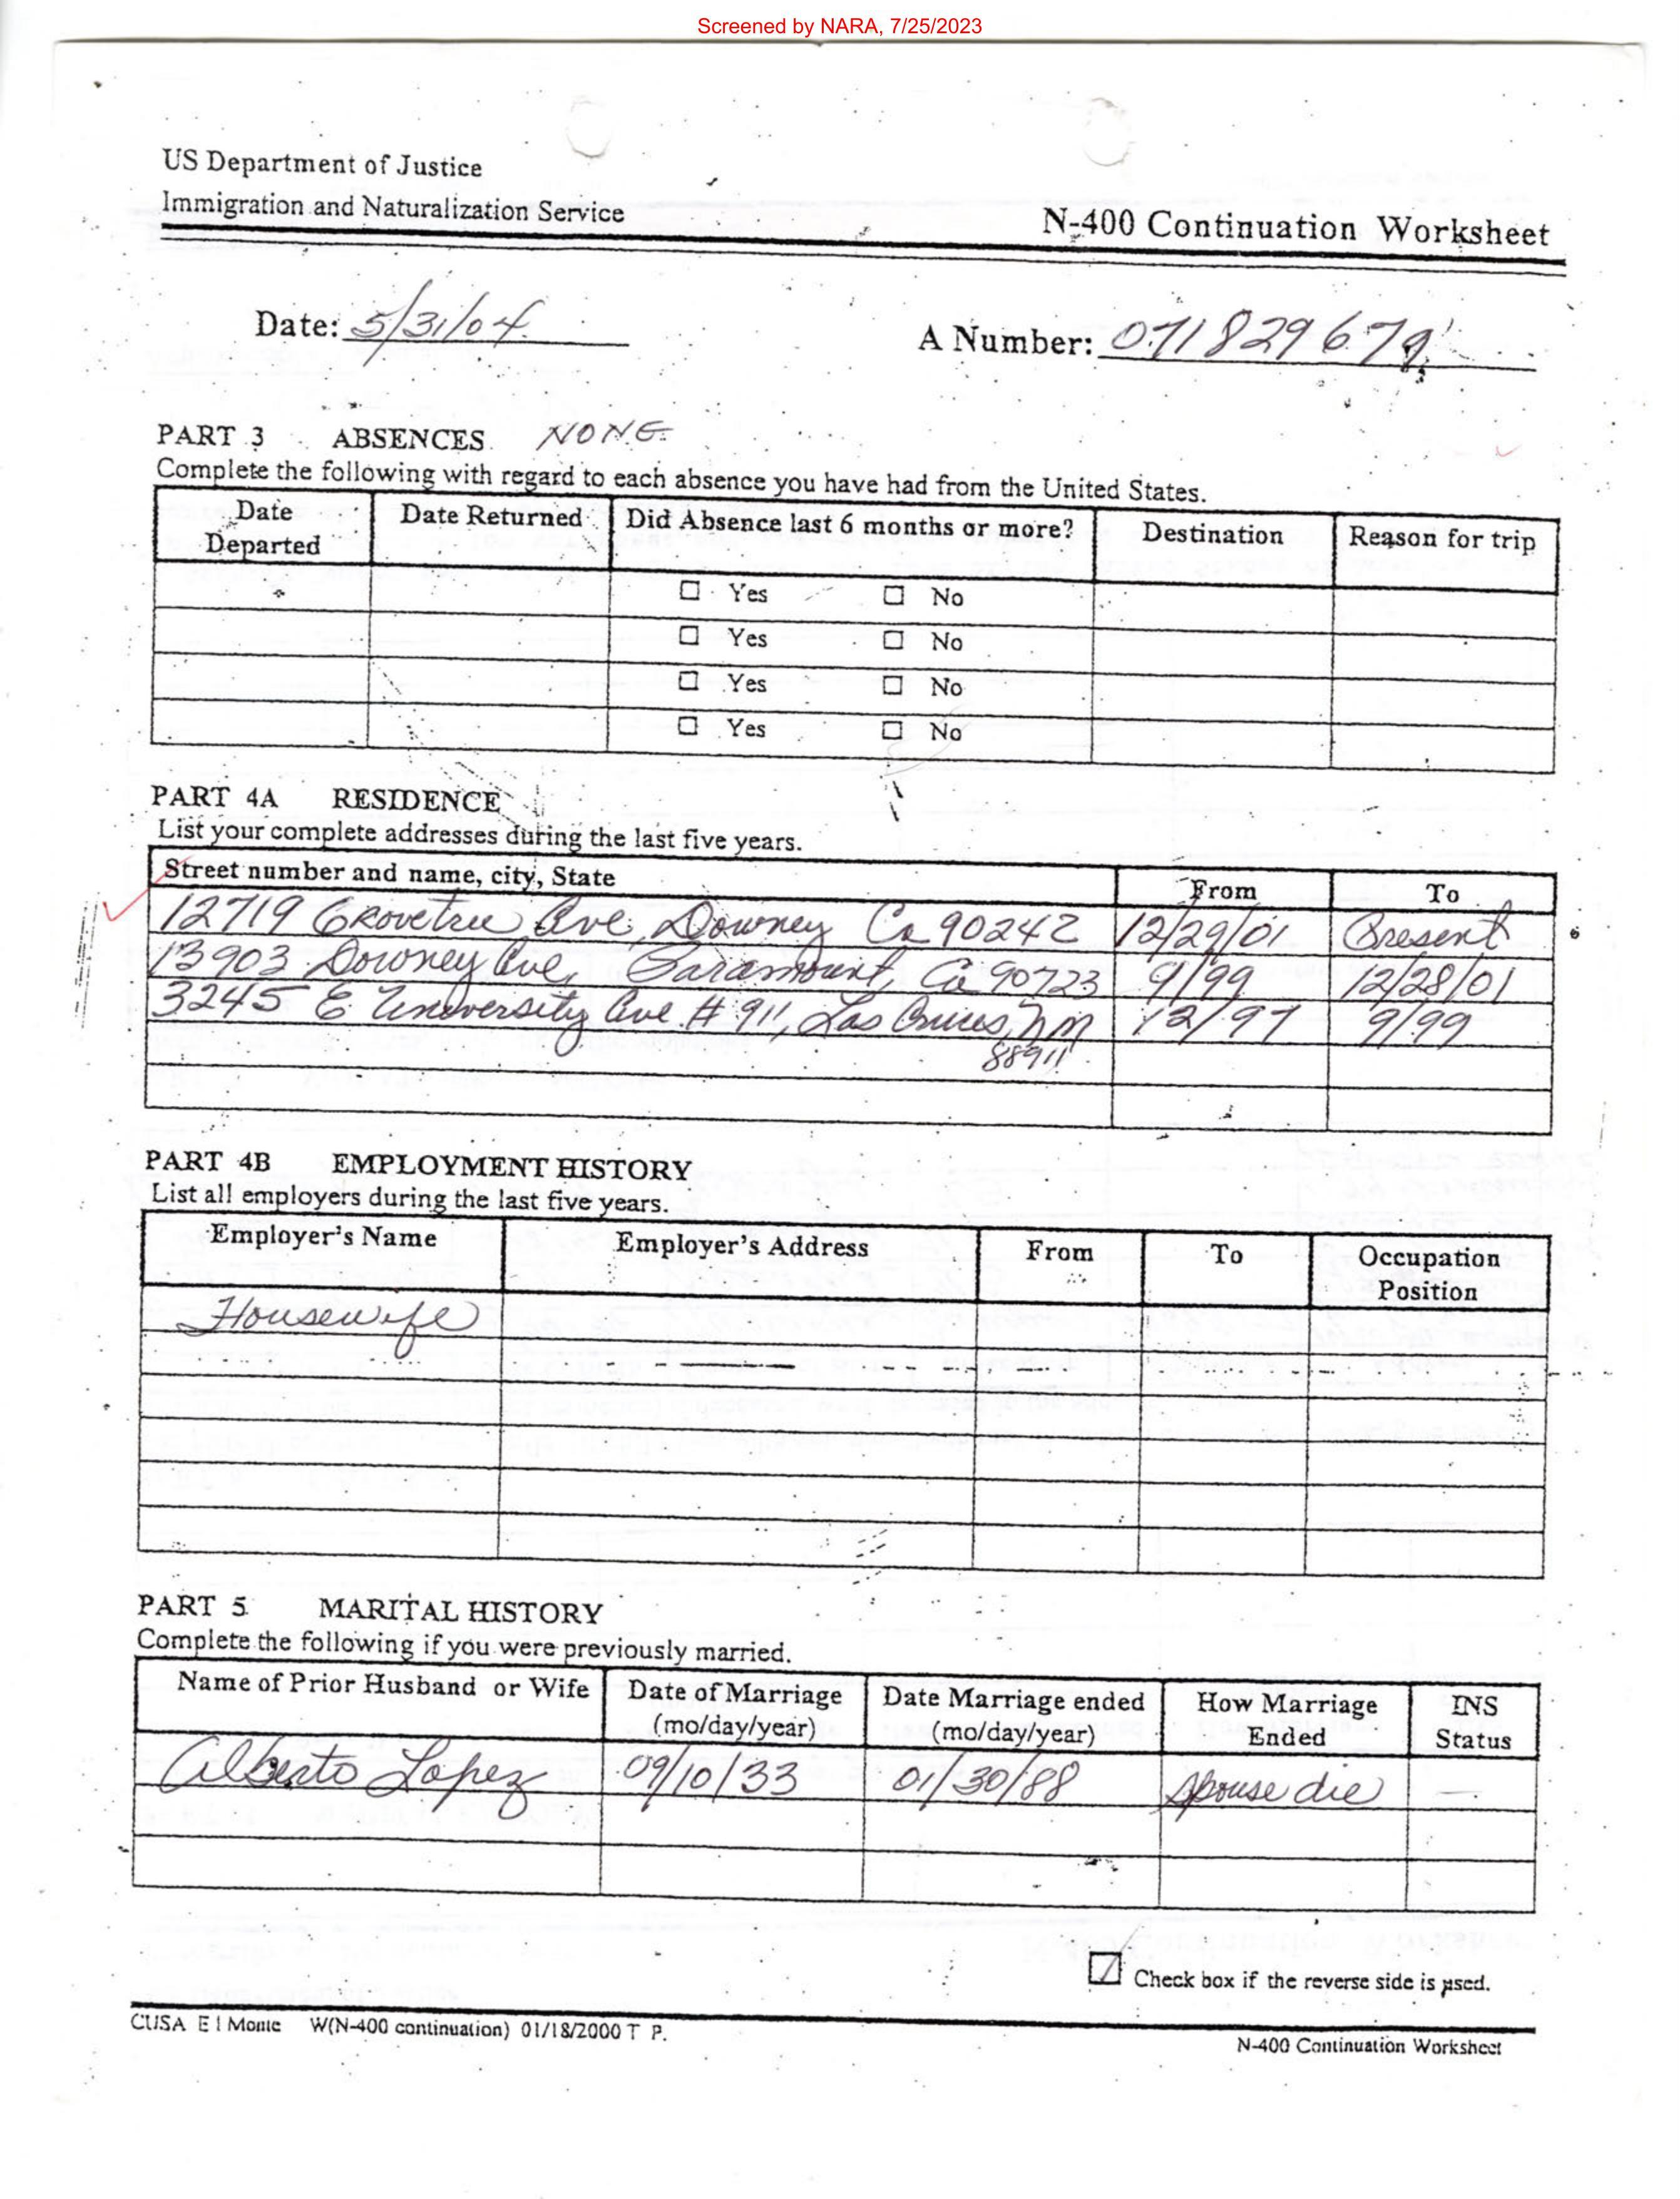 Screened by NARA, 7/25/2023
US Department of Justice
Immigration and Naturalization Service
N-400 Continuation Worksheet
Date: 5/31/04
A Number: 071829679
PART 3 ABSENCES NONE
Complete the following with regard to each absence you have had from the United States.
Date Departed Date Returned Did Absence last 6 months or more? Destination Reason for trip
☐ Yes ☐ No
☐ Yes ☐ No
☐ Yes ☐ No
☐ Yes ☐ No
PART 4A RESIDENCE
List your complete addresses during the last five years.
Street number and name, city, State From To
12719 Grovetree Ave, Downey Ca 90242 12/29/01 Present
13903 Downey Ave, Paramount, Ca 90723 9/99 12/28/01
3245 E University Ave # 911, Las Cruces, NM 12/97 9/99
88911
PART 4B EMPLOYMENT HISTORY
List all employers during the last five years.
Employer's Name Employer's Address From To Occupation Position
Housewife
PART 5 MARITAL HISTORY
Complete the following if you were previously married.
Name of Prior Husband or Wife Date of Marriage (mo/day/year) Date Marriage ended (mo/day/year) How Marriage Ended INS Status
Alberto Lopez 09/10/33 01/30/88 Spouse die —
☑ Check box if the reverse side is used.
CUSA El Monte W(N-400 continuation) 01/18/2000 T P.
N-400 Continuation Worksheet